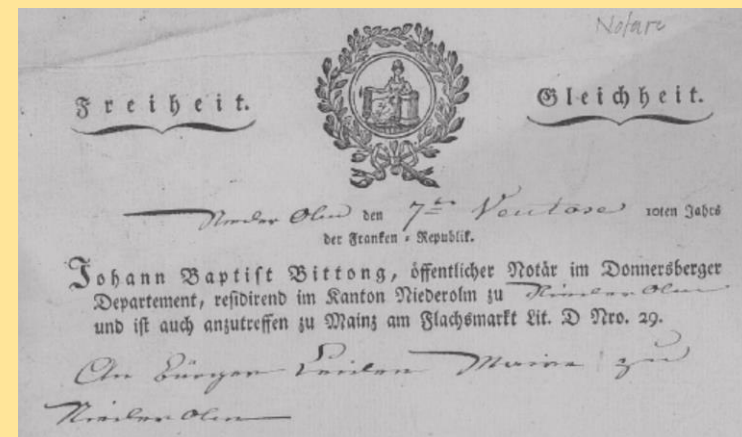 Notar
Freiheit. Gleichheit.
Nieder Olm den 7ten Ventose 10ten Jahrs
der Franken = Republik.
Johann Baptist Bittong, öffentlicher Notär im Donnersberger
Departement, residirend im Kanton Niederolm zu Nieder Olm
und ist auch anzutreffen zu Mainz am Flachsmarkt Lit. D Nro. 29.
An Bürger Maire zu
Nieder Olm